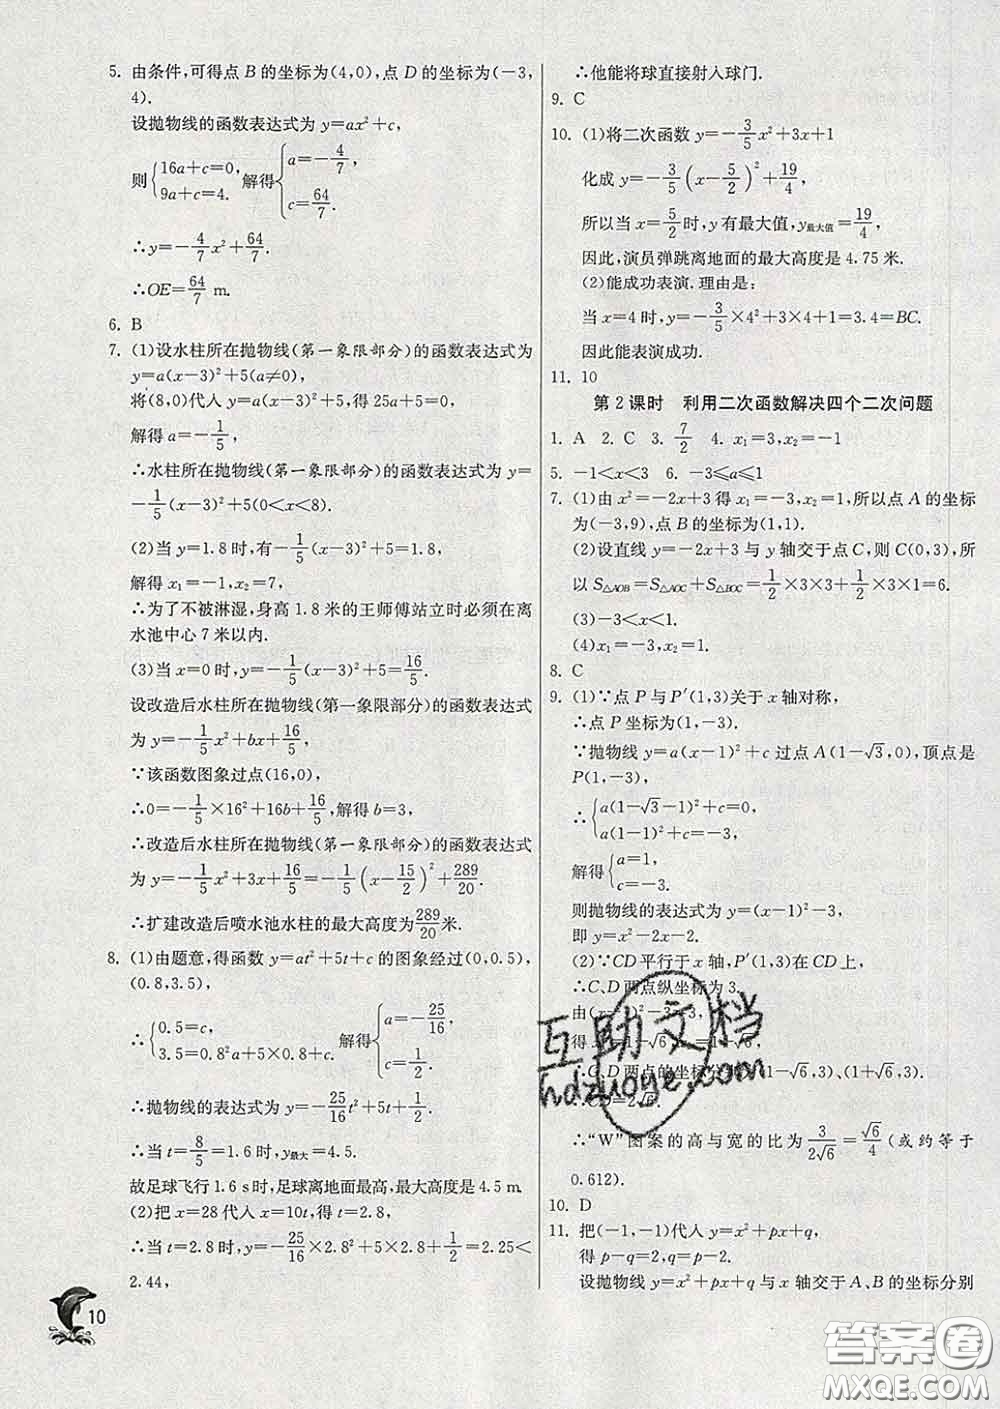 5. 由条件,可得点 B 的坐标为(4,0),点 D 的坐标为(-3,
4).
设抛物线的函数表达式为 y=ax²+c,
则{16a+c=0, 9a+c=4. 解得{a=-4/7, c=64/7.
∴y=-4/7x²+64/7.
∴OE=64/7 m.
6. B
7. (1)设水柱所在抛物线(第一象限部分)的函数表达式为
y=a(x-3)²+5(a≠0),
将(8,0)代入 y=a(x-3)²+5,得 25a+5=0,
解得 a=-1/5,
∴水柱所在抛物线(第一象限部分)的函数表达式为 y=
-1/5(x-3)²+5(0<x<8).
(2)当 y=1.8 时,有-1/5(x-3)²+5=1.8,
解得 x₁=-1,x₂=7,
∴为了不被淋湿,身高 1.8 米的王师傅站立时必须在离
水池中心 7 米以内.
(3)当 x=0 时,y=-1/5(x-3)²+5=16/5.
设改造后水柱所在抛物线(第一象限部分)的函数表达式
为 y=-1/5x²+bx+16/5,
∵该函数图象过点(16,0),
∴0=-1/5×16²+16b+16/5,解得 b=3,
∴改造后水柱所在抛物线(第一象限部分)的函数表达式
为 y=-1/5x²+3x+16/5=-1/5(x-15/2)²+289/20.
∴扩建改造后喷水池水柱的最大高度为289/20米.
8. (1)由题意,得函数 y=at²+5t+c 的图象经过(0,0.5),
(0.8,3.5),
∴{0.5=c, 3.5=0.8²a+5×0.8+c. 解得{a=-25/16, c=1/2.
∴抛物线的表达式为 y=-25/16t²+5t+1/2.
∴当 t=8/5=1.6 时,y最大=4.5.
故足球飞行 1.6 s时,足球离地面最高,最大高度是 4.5 m.
(2)把 x=28 代入 x=10t,得 t=2.8,
∴当 t=2.8 时,y=-25/16×2.8²+5×2.8+1/2=2.25<
2.44,
10
∴他能将球直接射入球门.
9. C
10. (1)将二次函数 y=-3/5x²+3x+1
化成 y=-3/5(x-5/2)²+19/4,
所以当 x=5/2时,y 有最大值,y最大值=19/4,
因此,演员弹跳离地面的最大高度是 4.75 米.
(2)能成功表演.理由是:
当 x=4 时,y=-3/5×4²+3×4+1=3.4=BC.
因此能表演成功.
11. 10
第 2 课时 利用二次函数解决四个二次问题
1. A 2. C 3. 7/2 4. x₁=3,x₂=-1
5. -1<x<3 6. -3≤a≤1
7. (1)由 x²=-2x+3 得 x₁=-3,x₂=1,所以点 A 的坐标
为(-3,9),点 B 的坐标为(1,1).
(2)设直线 y=-2x+3 与 y 轴交于点 C,则 C(0,3),所
以 S△AOB=S△AOC+S△BOC=1/2×3×3+1/2×3×1=6.
(3)-3<x<1.
(4)x₁=-3,x₂=1.
8. C
9. (1)∵点 P 与 P′(1,3)关于 x 轴对称,
∴点 P 坐标为(1,-3).
∵抛物线 y=a(x-1)²+c 过点 A(1-√3,0),顶点是
P(1,-3),
∴{a(1-√3-1)²+c=0, a(1-1)²+c=-3,
解得{a=1, c=-3.
则抛物线的表达式为 y=(x-1)²-3,
即 y=x²-2x-2.
(2)∵CD 平行于 x 轴,P′(1,3)在 CD 上,
∴C、D 两点纵坐标为 3.
由(x-1)²-3=3,
得 =1-√6, =1+√6,
∴C、D两点的坐标分 (1-√6,3),(1+√6,3).
∴CD=2√6.
∴“W”图案的高与宽的比为 3/(2√6)=√6/4(或约等于
0.612).
10. D
11. 把(-1,-1)代入 y=x²+px+q,
得 p-q=2,q=p-2,
设抛物线 y=x²+px+q 与 x 轴交于 A、B 的坐标分别
互助文档
hdzuoye.com
答案圈
MXQE.COM